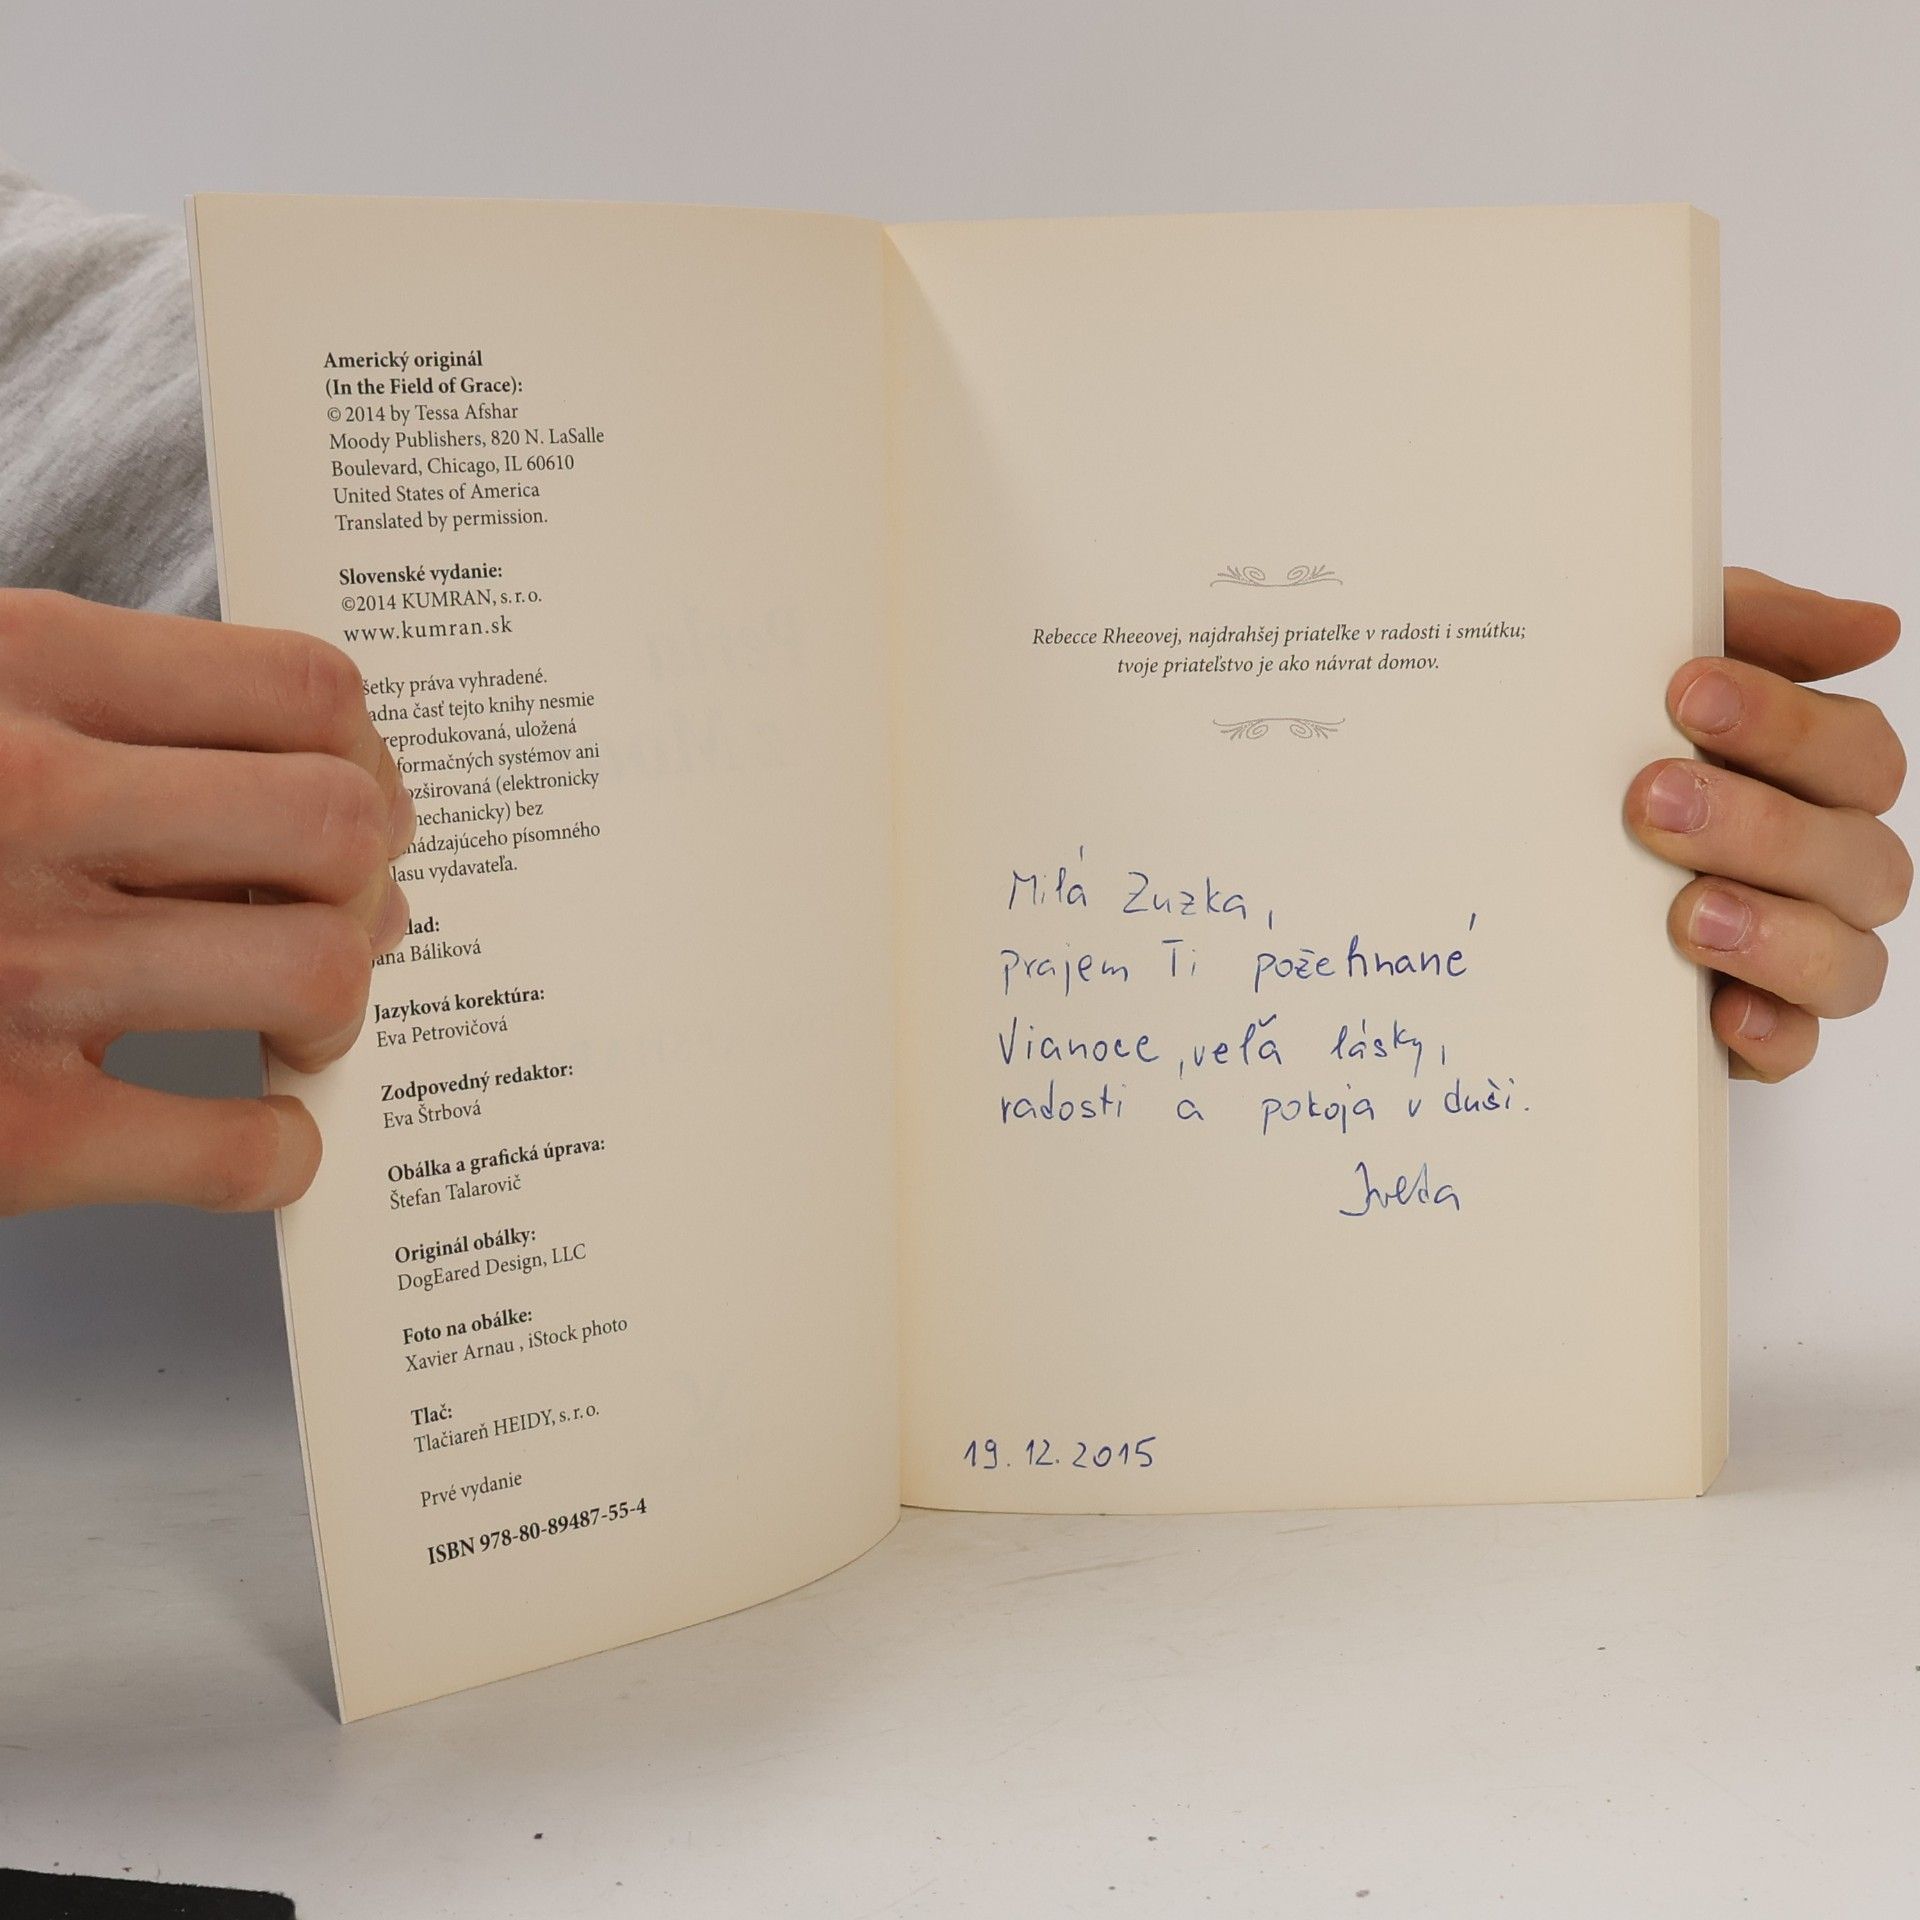 Americký originál
(In the Field of Grace):
© 2014 by Tessa Afshar
Moody Publishers, 820 N. LaSalle
Boulevard, Chicago, IL 60610
United States of America
Translated by permission.
Slovenské vydanie:
©2014 KUMRAN, s.r.o.
www.kumran.sk
práva vyhradené.
časť tejto knihy nesmie
reprodukovaná, uložená
systémov ani
(elektronicky
bez
písomného
vydavateľa.
Báliková
Jazyková korektúra:
Eva Petrovičová
Zodpovedný redaktor:
Eva Štrbová
Obálka a grafická úprava:
Štefan Talarovič
Originál obálky:
DogEared Design, LLC
Foto na obálke:
Xavier Arnau , iStock photo
Tlač:
Tlačiareň HEIDY, s.r.o.
Prvé vydanie
ISBN 978-80-89487-55-4
Rebecce Rheeovej, najdrahšej priateľke v radosti i smútku;
tvoje priateľstvo je ako návrat domov.
Milá Zuzka,
prajem Ti požehnané
Vianoce, veľa lásky,
radosti a pokoja v duši.
Iveta
19.12.2015